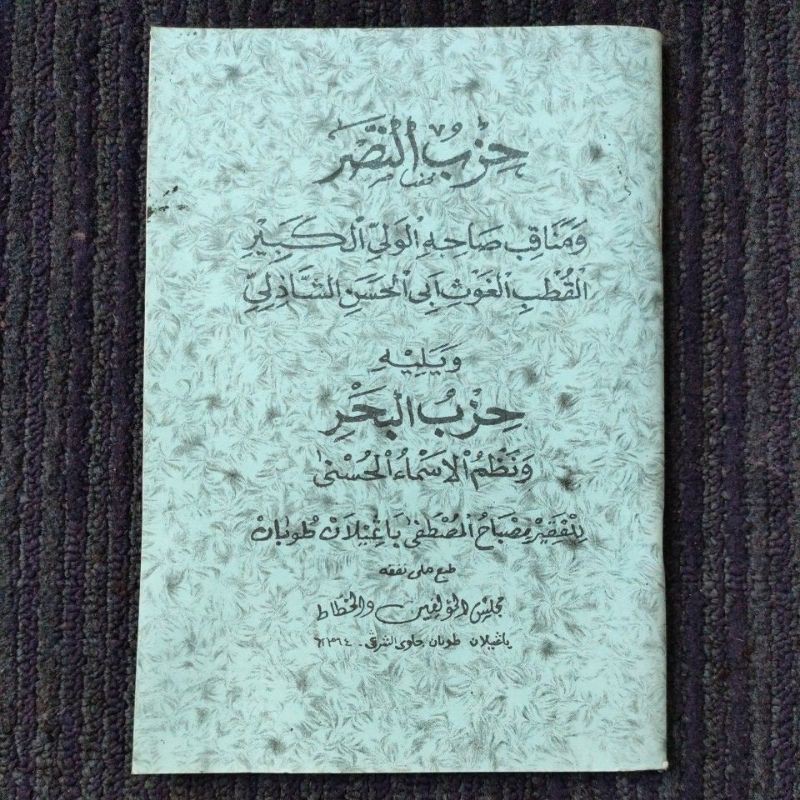 حِزْبُ النَّصْرِ
وَمَنَاقِبُ صَاحِبِهِ الْوَلِيِّ الْكَبِيْرِ
الْقُطْبِ الْغَوْثِ اَبِى الْحَسَنِ الشَّاذِلِيّ
وَيَلِيْهِ
حِزْبُ الْبَحْرِ
وَنَظْمُ الْاَسْمَاءُ الْحُسْنٰى
لِلْفَقِيْرِ مِصْبَاحُ الْمُصْطَفٰى بَاغِيْلَانْ طُوبَانْ
طبع على نفقة
مجلس المؤلفين والخطاط
باغيلان طوبان جاوى الشرقى -